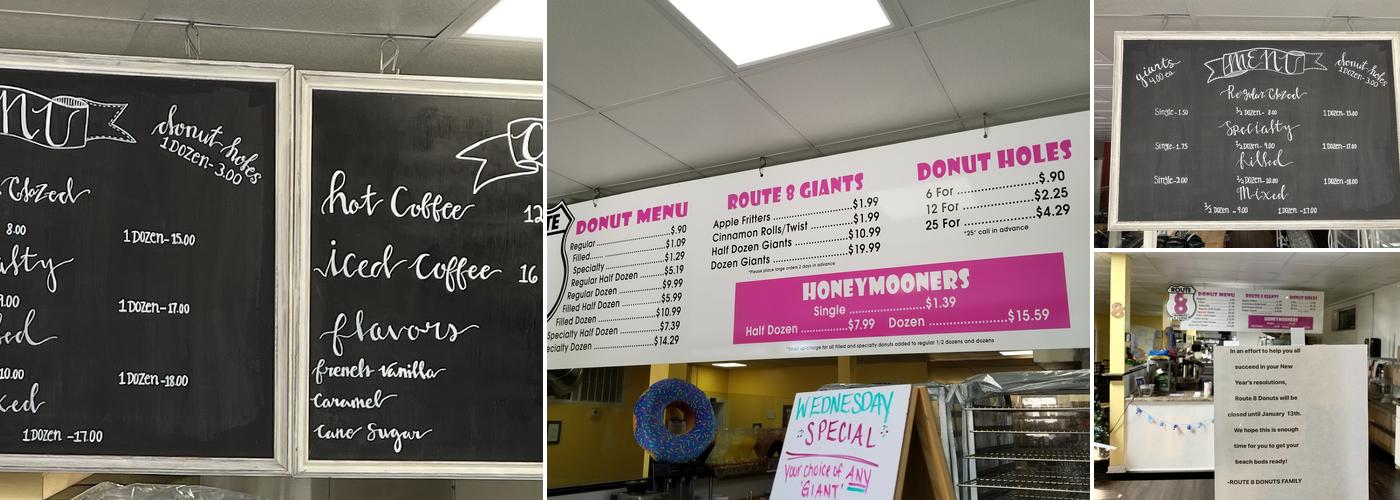 NU
donut holes
1 Dozen - 3.00
Glazed
8.00
1 Dozen - 15.00
alty
9.00
1 Dozen - 17.00
ed
10.00
1 Dozen - 18.00
xed
1 Dozen - 17.00
hot Coffee 12
iced Coffee 16
flavors
french vanilla
Caramel
Cane Sugar
TE
DONUT MENU
Regular ..........$.90
Filled..........$1.09
Specialty ..........$1.29
Regular Half Dozen ..........$5.19
Regular Dozen ..........$9.99
Filled Half Dozen ..........$5.99
Filled Dozen ..........$10.99
Specialty Half Dozen ..........$7.39
ecialty Dozen ..........$14.29
ROUTE 8 GIANTS
Apple Fritters ..........$1.99
Cinnamon Rolls/Twist ..........$1.99
Half Dozen Giants ..........$10.99
Dozen Giants ..........$19.99
*Please place large orders 2 days in advance
DONUT HOLES
6 For ..........$.90
12 For ..........$2.25
25 For ..........$4.29
*25* call in advance
HONEYMOONERS
Single ..........$1.39
Half Dozen ..........$7.99 Dozen ..........$15.59
*Small up-charge for all filled and specialty donuts added to regular 1/2 dozens and dozens
WEDNESDAY
SPECIAL
Your choice of ANY
"GIANT"
giants
4.00 ea.
MENU
donut holes
1 Dozen - 3.00
Regular Glazed
Single - 1.50 ½ Dozen - 8.00 1 Dozen - 15.00
Specialty
Single - 1.75 ½ Dozen - 9.00 1 Dozen - 17.00
filled
Single - 2.00 ½ Dozen - 10.00 1 Dozen - 18.00
Mixed
½ Dozen - 9.00 1 Dozen - 17.00
ROUTE
8
DONUT MENU
ROUTE 8 GIANTS
DONUT HOLES
HONEYMOONERS
8
In an effort to help you all
succeed in your New
Year's resolutions,
Route 8 Donuts will be
closed until January 13th.
We hope this is enough
time for you to get your
beach bods ready!
-ROUTE 8 DONUTS FAMILY